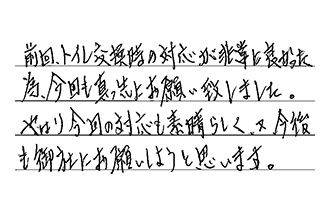 前回、トイレ交換時の対応が非常に良かった
為、今回も真っ先にお願い致しました。
やはり今回の対応も素晴らしく、又今後
も御社にお願いしようと思います。